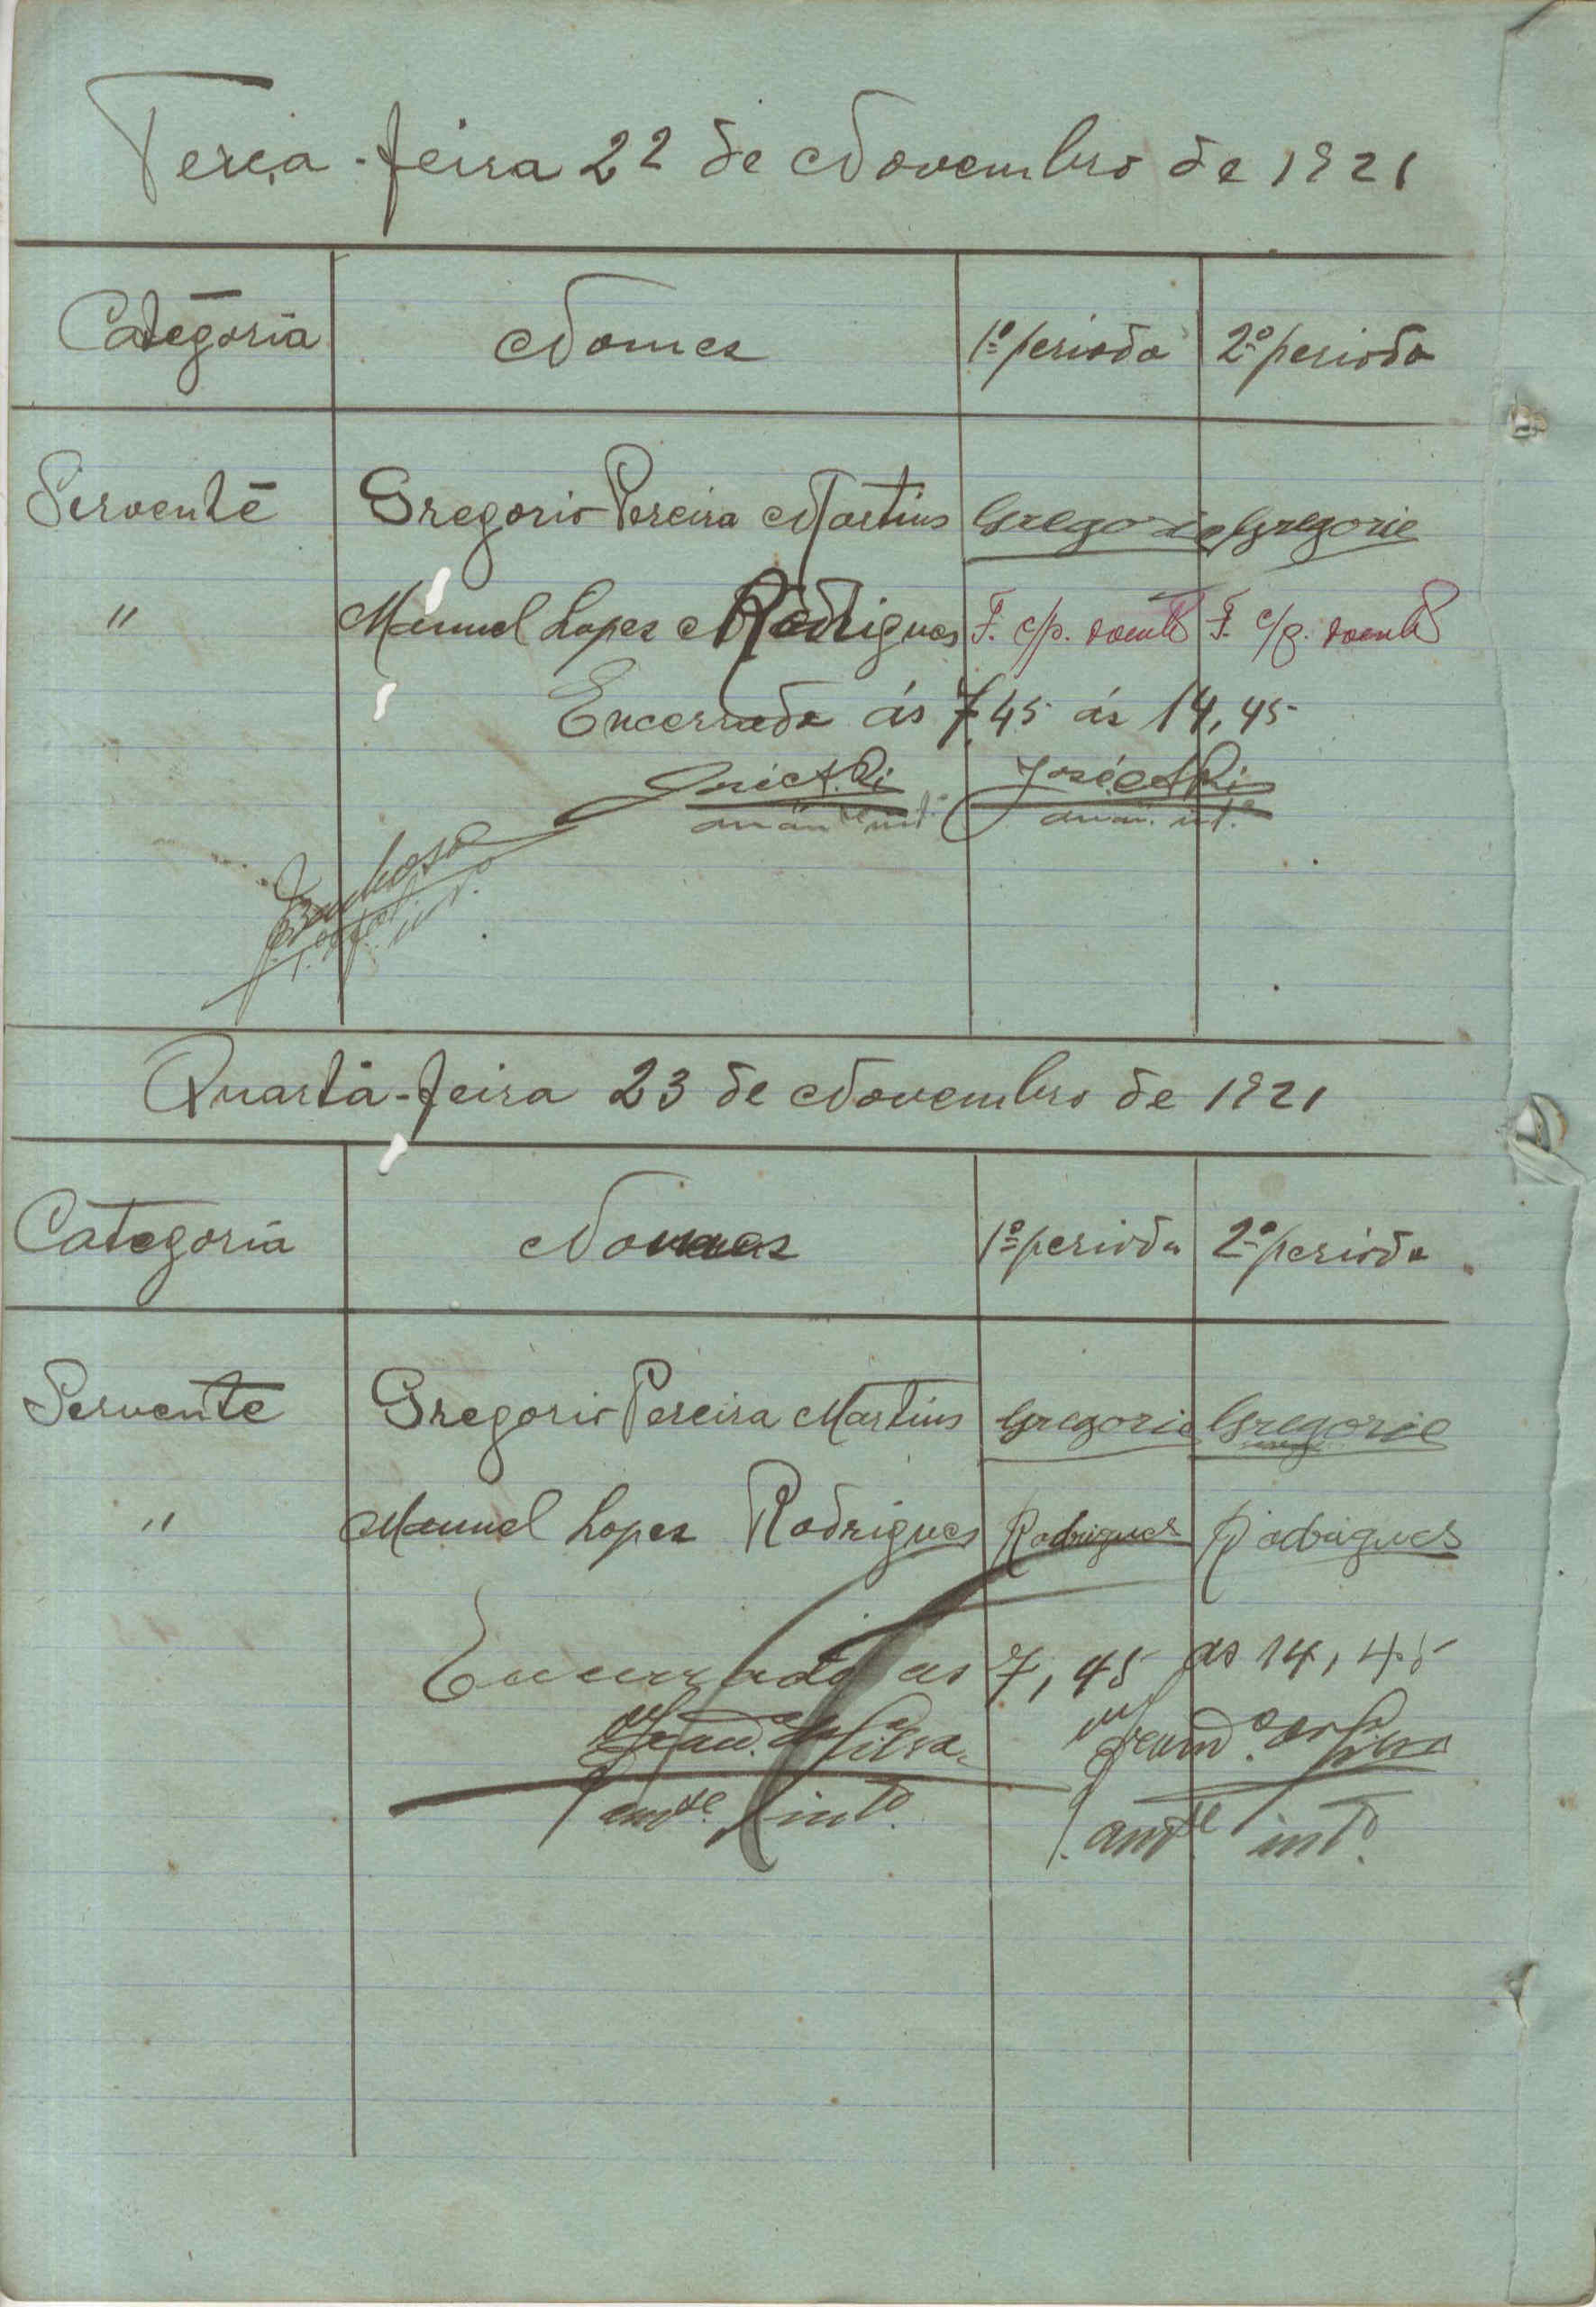 Terça-feira 22 de Novembro de 1921
Categoria Nomes 1º periodo 2º periodo
Servente Gregorio Pereira Martins Gregorio Gregorio
" Manuel Lopes Rodrigues F. c/p. doente F. c/p. doente
Encerrado ás 7,45 ás 14,45
José A. José A.
int.º
Quarta-feira 23 de Novembro de 1921
Categoria Nomes 1º periodo 2º periodo
Servente Gregorio Pereira Martins Gregorio Gregorio
" Manuel Lopes Rodrigues Rodrigues Rodrigues
Encerrado as 7,45 as 14,45
da Silva da Silva
int.º int.º